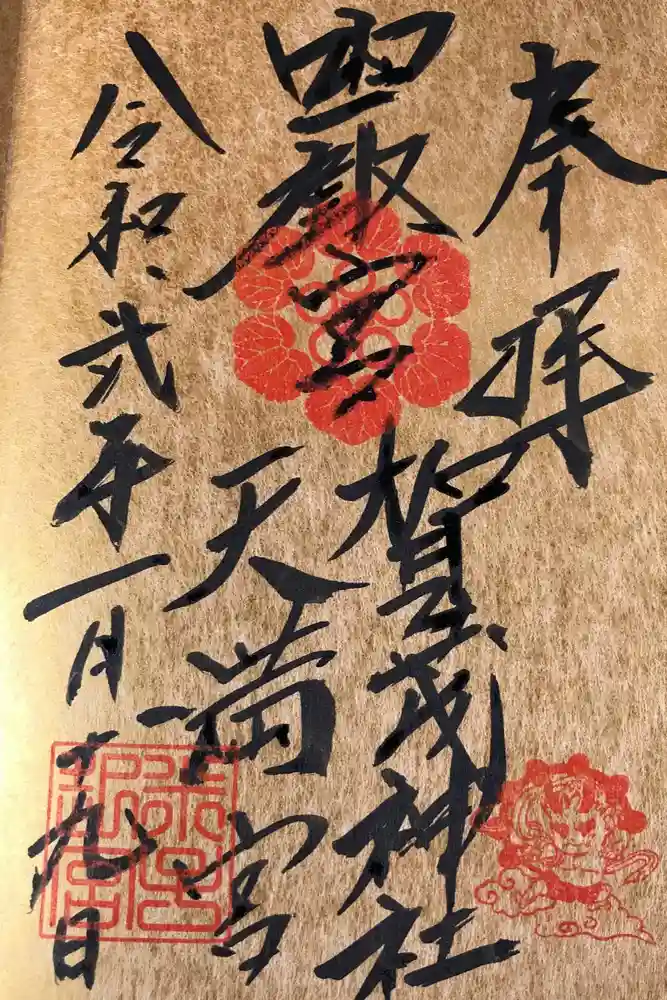 奉拝
嚴宮
賀茂神社
天満宮
令和弐年一月十九日